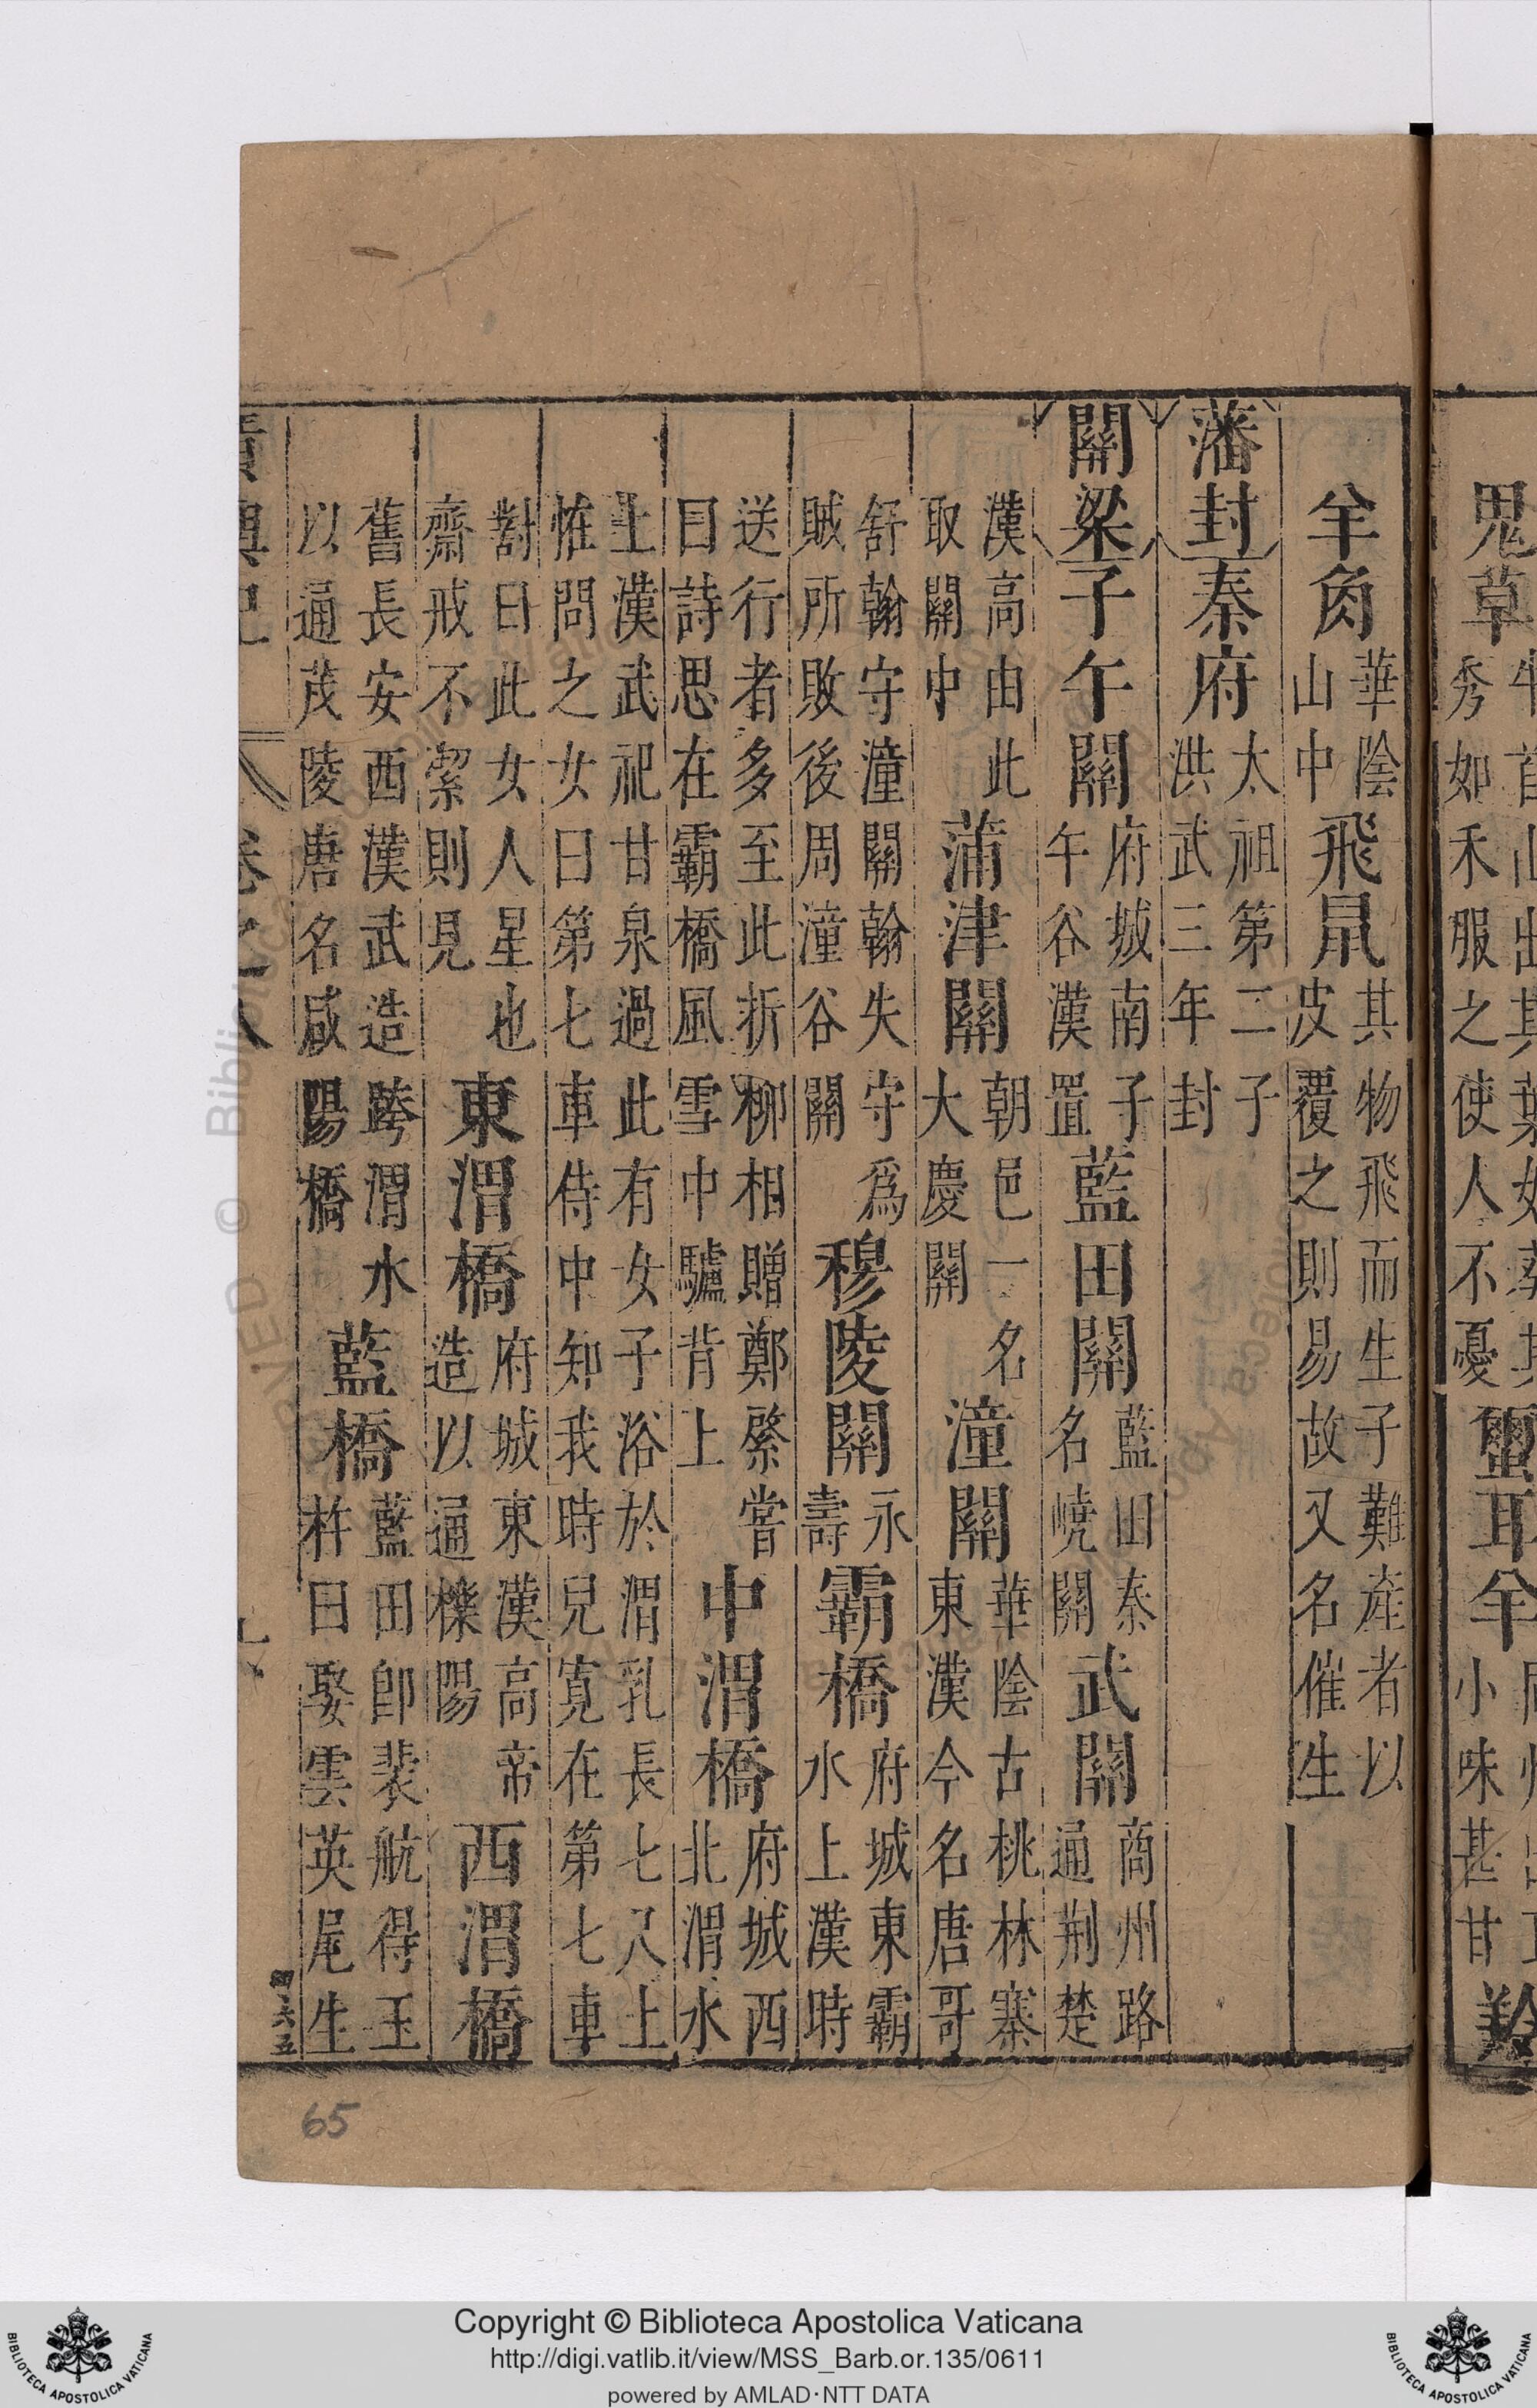 鬼草秀如禾服之使人不憂 耳羊小味甚甘
羊角華陰山中飛鼠其物飛而生子難產者以皮覆之則易故又名催生
藩封秦府太祖第二子洪武三年封
關梁子午關府城南子午谷漢置藍田關藍田秦名嶢關武關商州路通荆楚
漢高由此取關中蒲津關朝邑一名大慶關潼關華陰古桃林寨東漢今名唐哥
舒翰守潼關翰失守爲賊所敗後周潼谷關穆陵關永壽霸橋府城東霸水上漢時
送行者多至此折柳相贈鄭綮嘗曰詩思在霸橋風雪中驢背上中渭橋府城西北渭水
上漢武祀甘泉過此有女子浴於渭乳長七八上惟問之女曰第七車侍中知我時兒寛在第七車
對曰此女人星也齋戒不潔則見東渭橋府城東漢高帝造以通櫟陽西渭橋
舊長安西漢武造跨渭水以通茂陵唐名咸陽橋藍橋藍田卽裴航得玉杵曰娶雲英尾生
卷之八
六五
65
Copyright © Biblioteca Apostolica Vaticana
http://digi.vatlib.it/view/MSS_Barb.or.135/0611
powered by AMLAD·NTT DATA
BIBLIOTECA APOSTOLICA VATICANA
BIBLIOTECA APOSTOLICA VATICANA